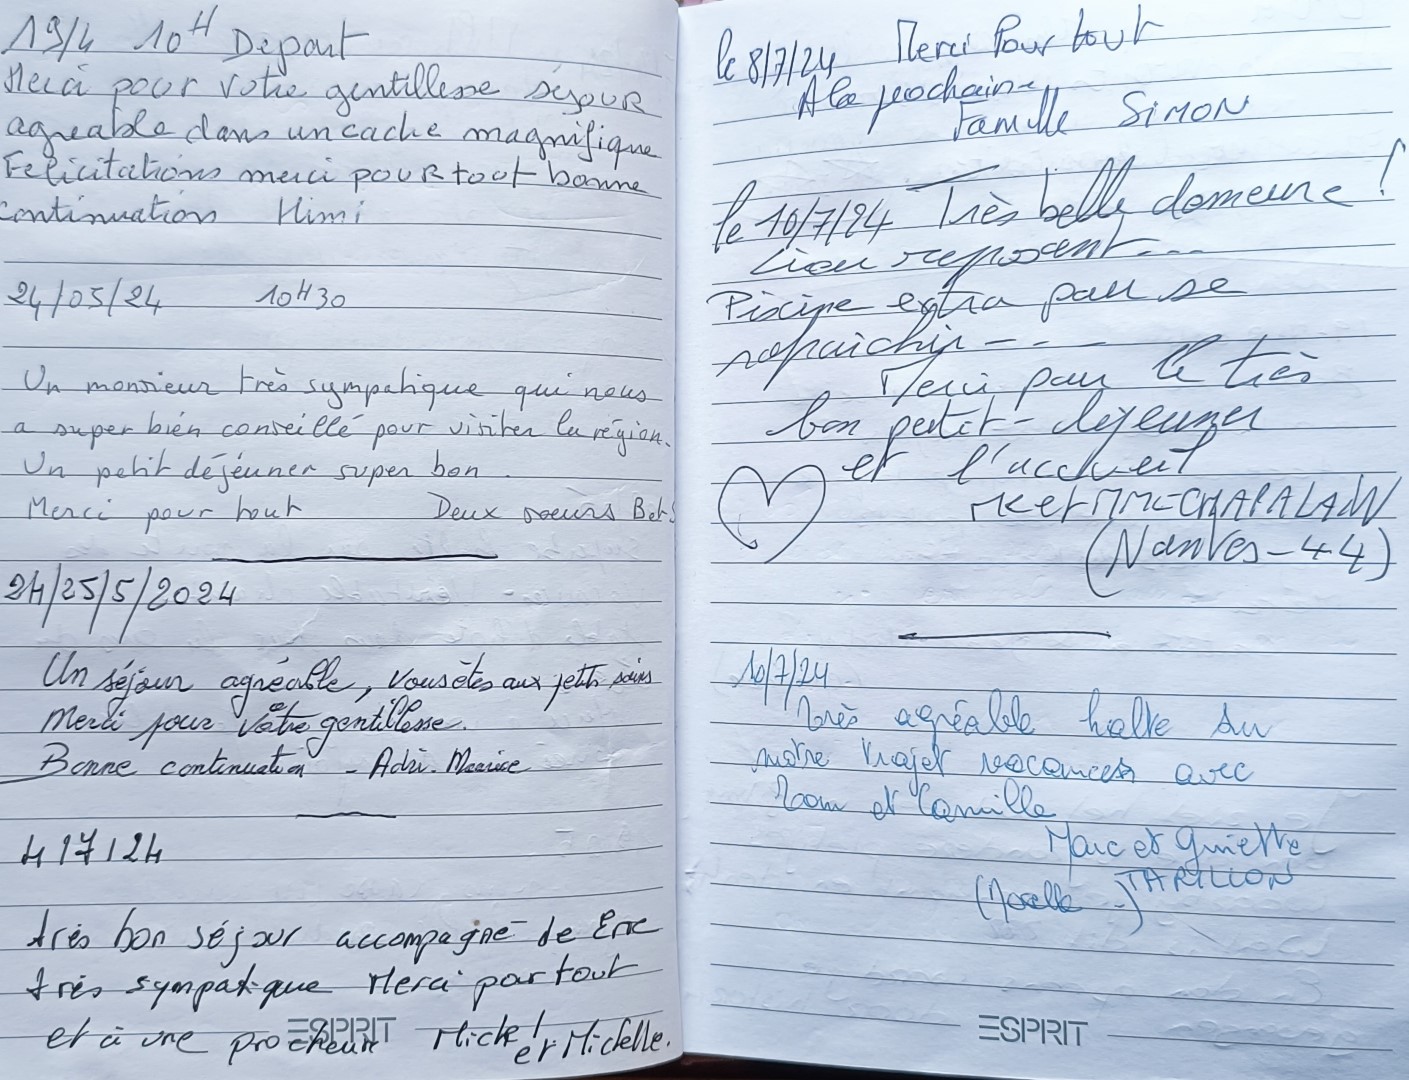 19/4 10H Depart
Merci pour votre gentillesse séjour
agreable dans un cache magnifique
Felicitations merci pour tout bonne
continuation Mimi
24/05/24 10H30
Un monsieur très sympatique qui nous
a super bien conseillé pour visiter la région.
Un petit déjeuner super bon.
Merci pour tout Deux soeurs
24/25/5/2024
Un séjour agréable, vous êtes aux petits soins
Merci pour votre gentillesse.
Bonne continuation -
4/7/24
très bon séjour accompagné de Eric
très sympatique Merci pour tout
et à une prochaine Michel
et Michelle.
ESPRIT
le 8/7/24 Merci Pour tout
A la prochaine
Famille SIMON
le 10/7/24 Très belle demeure !
Lieu reposant...
Piscine extra pour se
rafraichir - - -
Merci pour le très
bon petit-dejeuner
et l'accueil
Mr et MME CHAPALAIN
(Nantes-44)
10/7/24
Très agréable halte su
notre trajet vacances avec
et Camille
Marc et Guiette
TARILLON
(Moselle -)
ESPRIT